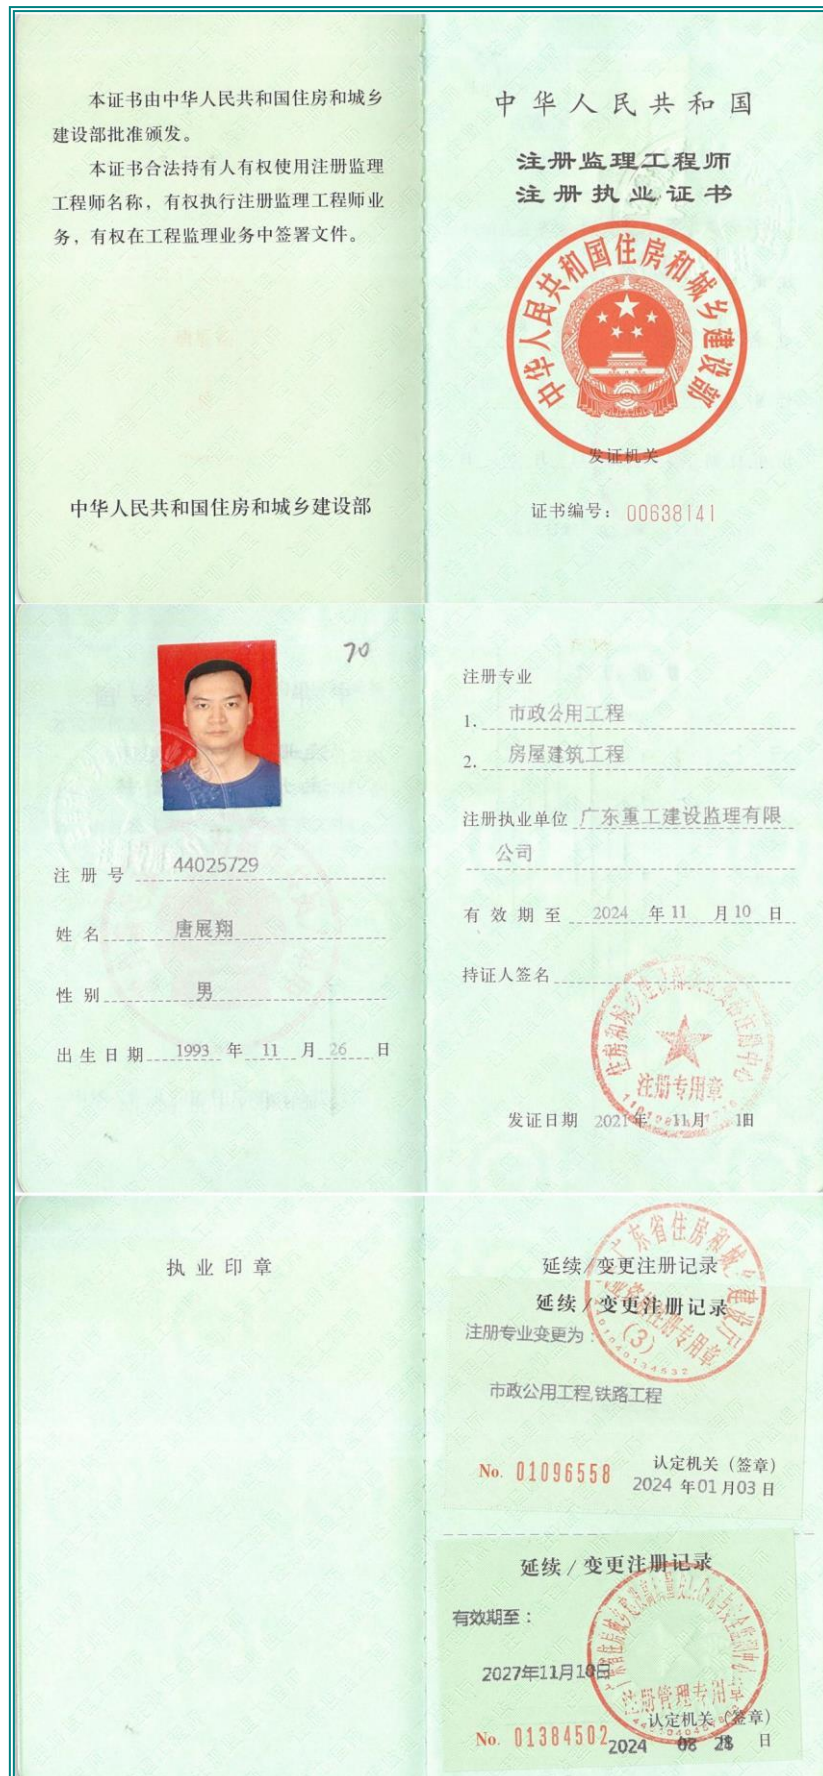 本证书由中华人民共和国住房和城乡
建设部批准颁发。
本证书合法持有人有权使用注册监理
工程师名称，有权执行注册监理工程师业
务，有权在工程监理业务中签署文件。
中华人民共和国住房和城乡建设部
中华人民共和国
注册监理工程师
注册执业证书
中华人民共和国住房和城乡建设部
发证机关
证书编号：00638141
70
注册号 44025729
姓名 唐展翔
性别 男
出生日期 1993 年 11 月 26 日
注册专业
1. 市政公用工程
2. 房屋建筑工程
注册执业单位 广东重工建设监理有限
公司
有效期至 2024 年 11 月 10 日
持证人签名
注册专用章
发证日期 2021 年 11 月 11日
执业印章
广东省住房和城乡建设厅
(3)
延续/变更注册记录
延续/变更注册记录
注册专业变更为：
市政公用工程,铁路工程
No. 01096558
认定机关（签章）
2024 年 01 月 03 日
延续/变更注册记录
有效期至：
2027年11月10日
注册管理专用章
No. 01384502
认定机关（签章）
2024 08 月 28 日